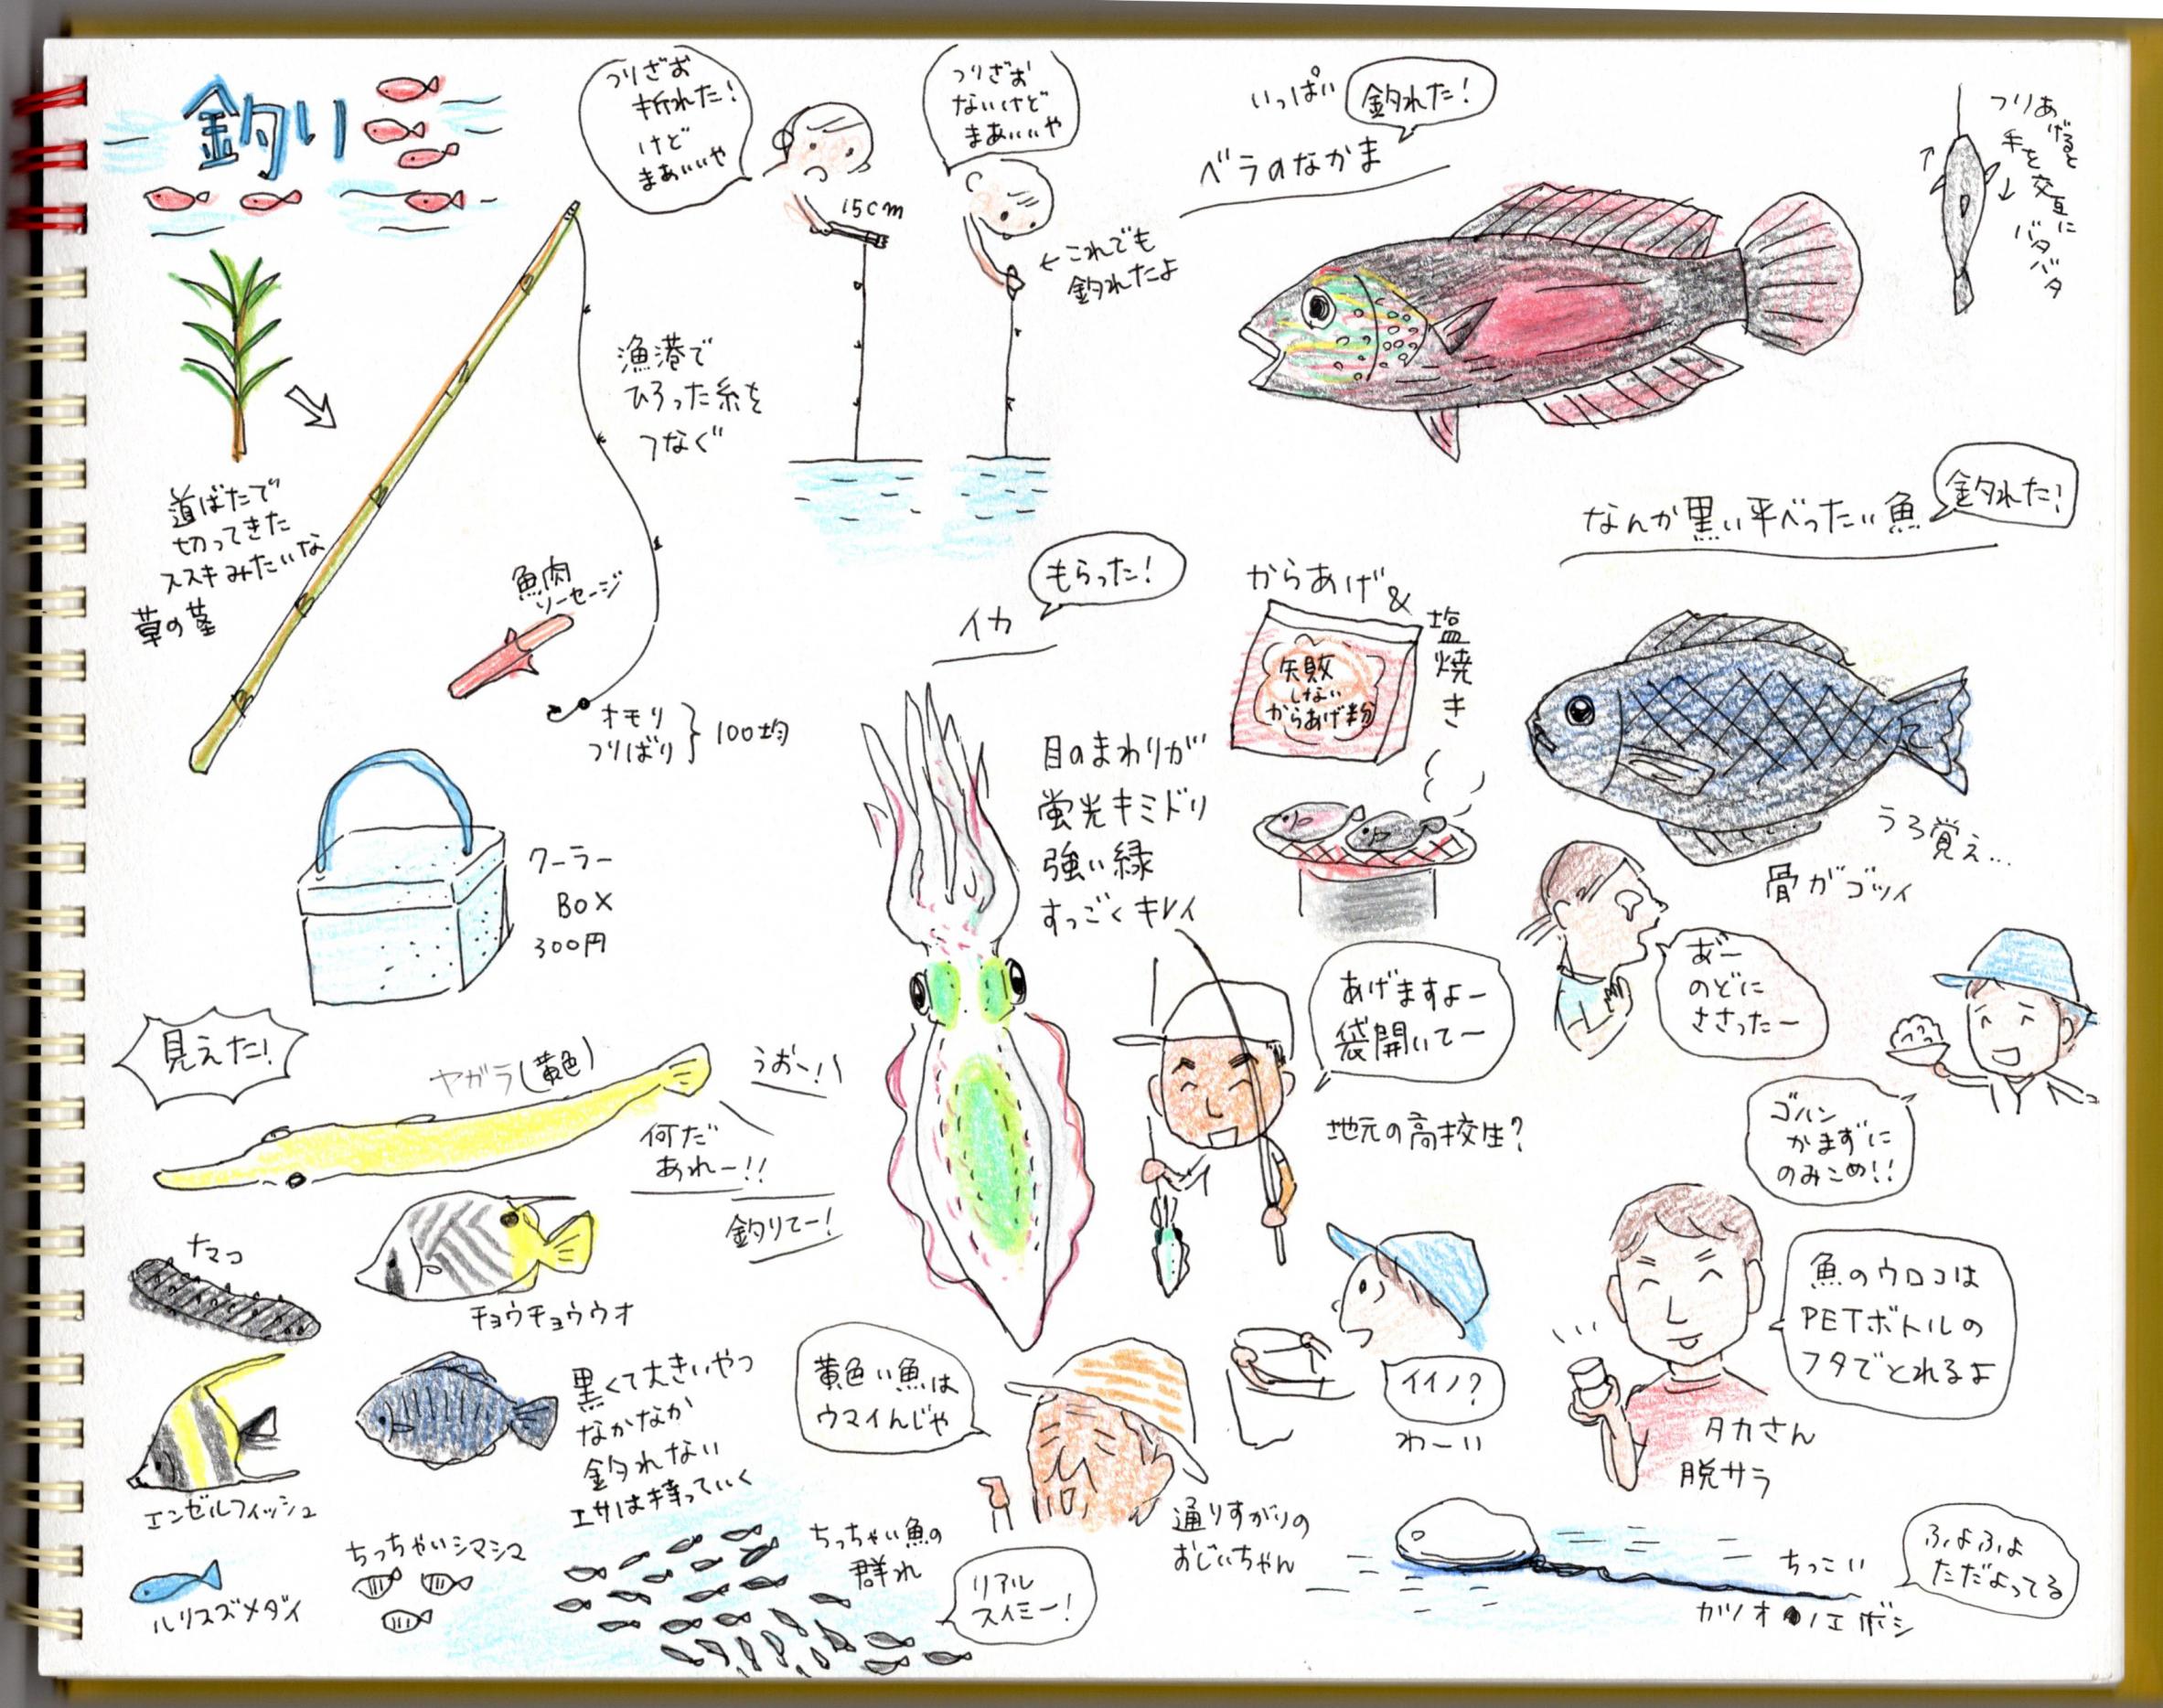 釣り
つりざお
折れた!
けど
まあいいや
15cm
つりざお
ないけど
まあいいや
←これでも
釣れたよ
道ばたで
切ってきた
ススキみたいな
草の茎
漁港で
ひろった糸を
つなぐ
魚肉
ソーセージ
オモリ
つりばり
100均
クーラー
BOX
300円
いっぱい
釣れた!
ベラのなかま
つりあげると
手を交互に
バタバタ
なんか黒い平べったい魚
釣れた!
うろ覚え…
骨がゴツイ
イカ
もらった!
目のまわりが
蛍光キミドリ
強い緑
すっごくキレイ
からあげ&
塩焼き
失敗
しない
からあげ粉
あげますよー
袋開いてー
地元の高校生?
あ゛ー
のどに
ささったー
ゴハン
かまずに
のみこめ!!
イイノ?
わーい
魚のウロコは
PETボトルの
フタでとれるよ
タカさん
脱サラ
見えた!
ヤガラ(黄色)
うおー!
何だ
あれー!!
釣りてー!
ナマコ
チョウチョウウオ
エンゼルフィッシュ
黒くて大きいやつ
なかなか
釣れない
エサは持っていく
ルリスズメダイ
ちっちゃいシマシマ
ちっちゃい魚の
群れ
リアル
スイミー!
黄色い魚は
ウマイんじゃ
通りすがりの
おじいちゃん
ちっこい
カツオノエボシ
ふよふよ
ただよってる